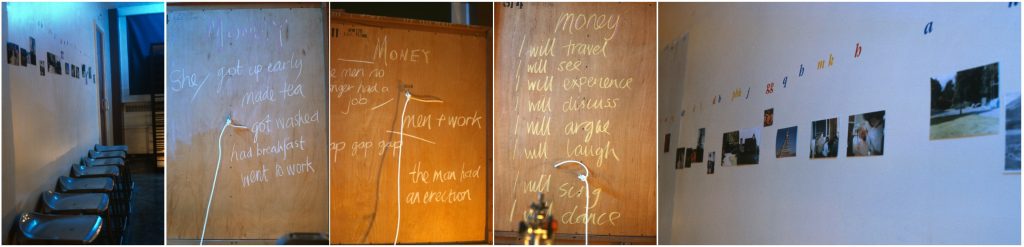 Money
She / got up early
made tea
got washed
had breakfast
went to work
MONEY
e men no
nger had a
job
men + work
ap gap gap
the man had
an erection
money
I will travel
I will see
I will experience
I will discuss
I will argue
I will laugh
I will sing
I will dance
gg q h m k h a